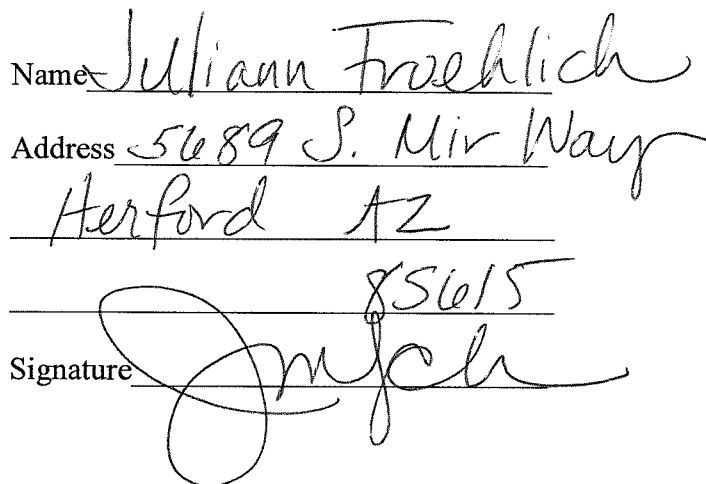 Name Juliann Froehlich
Address 5689 S. Mir Way
Herford AZ
85615
Signature